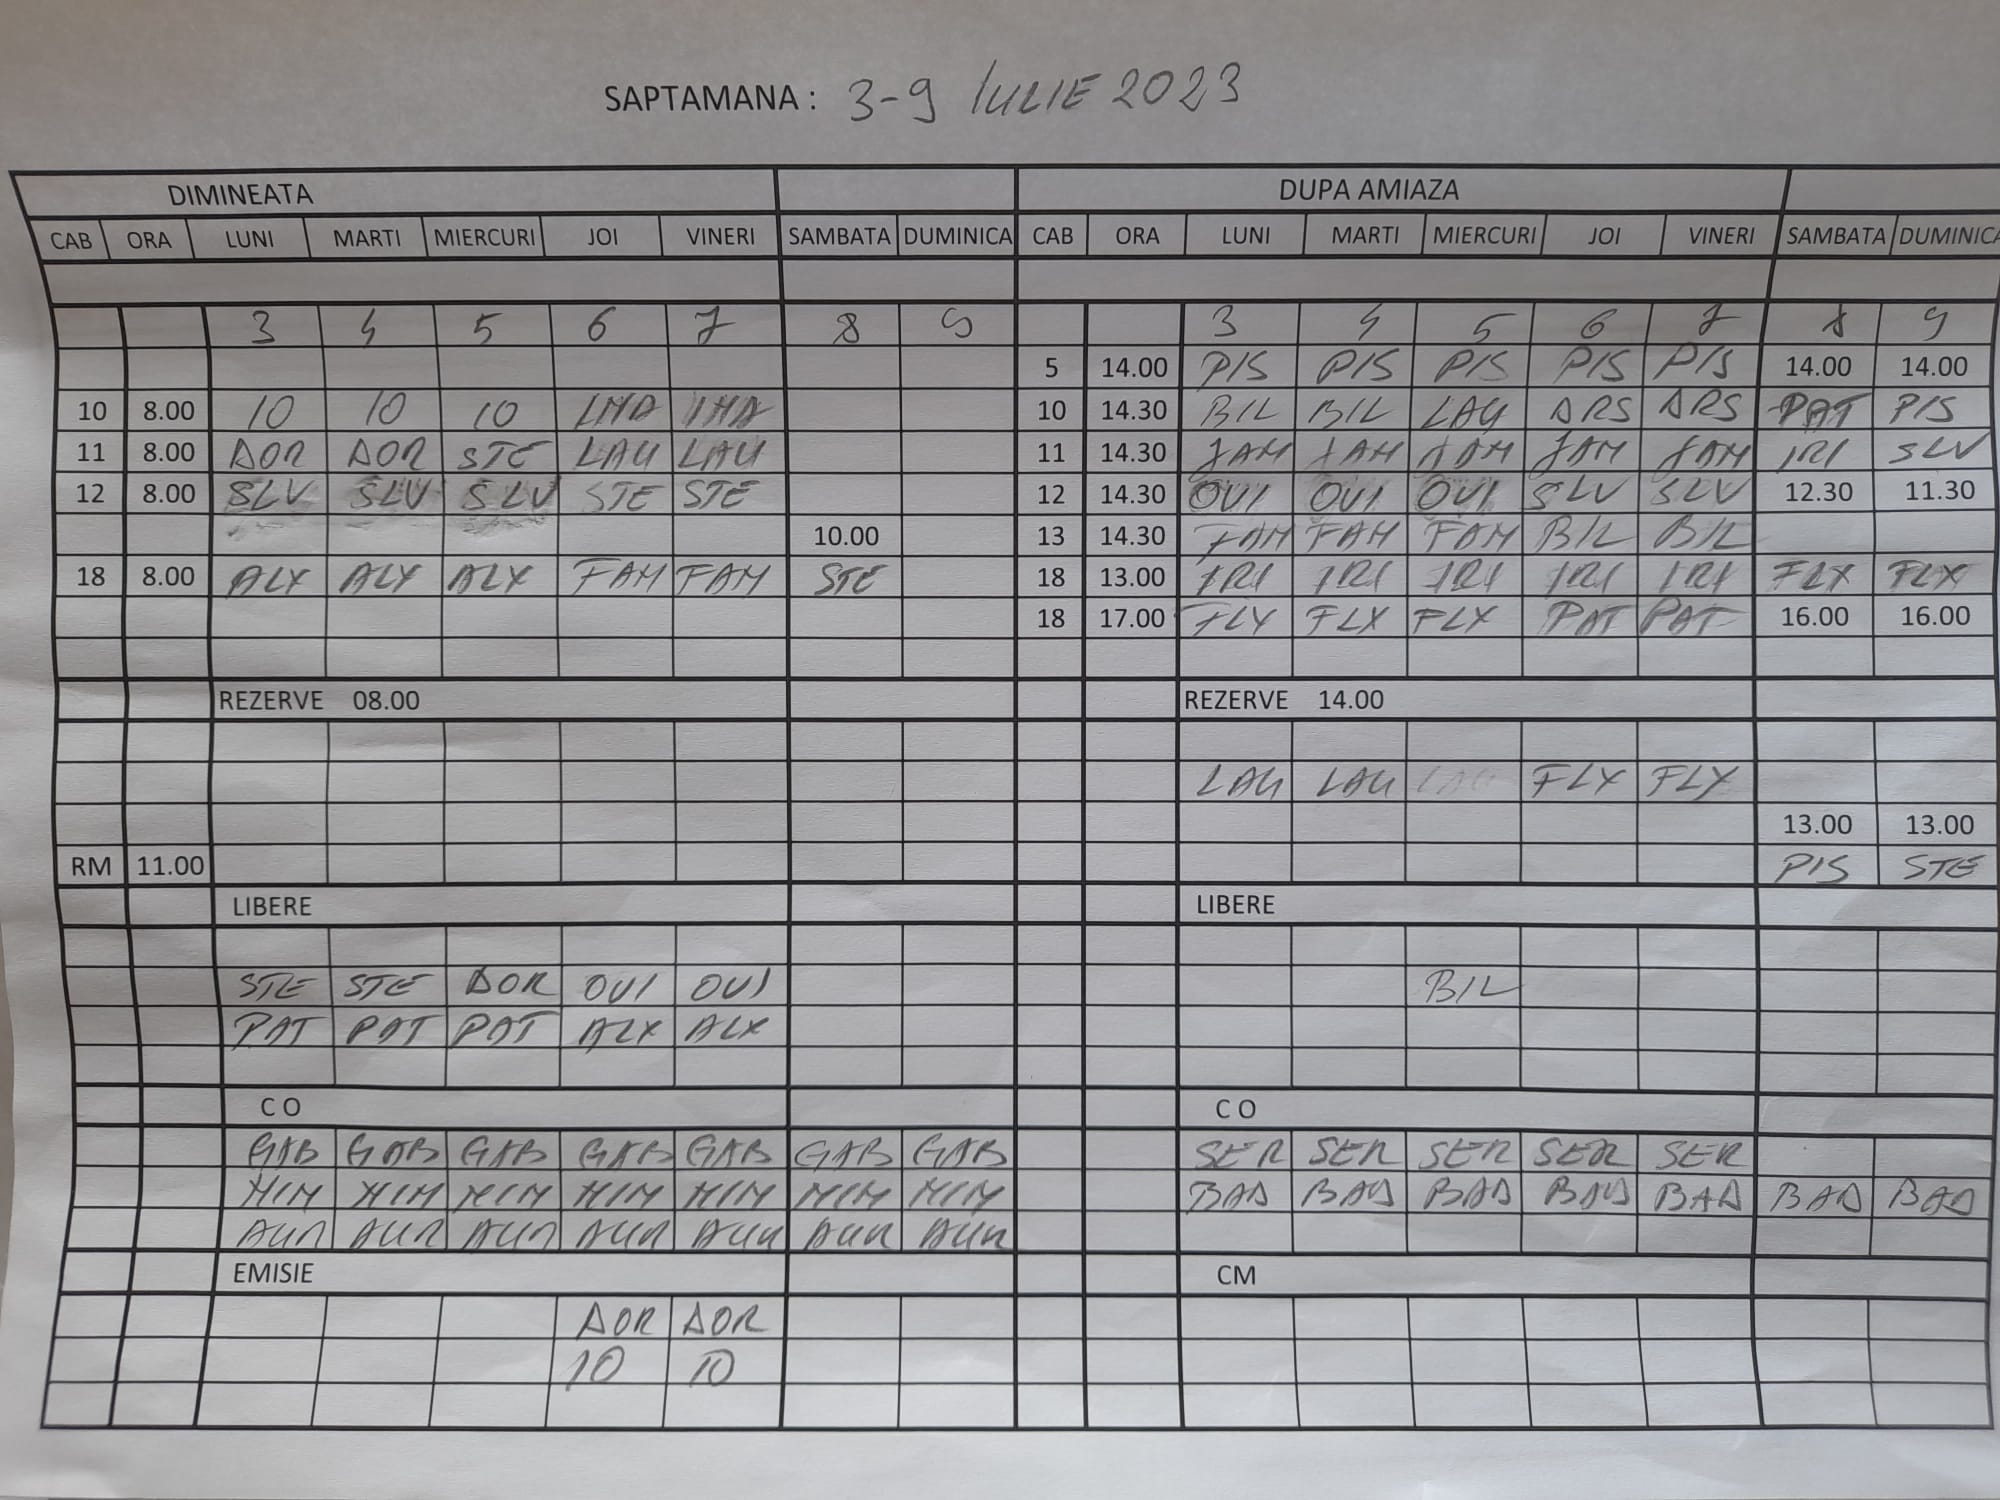 SAPTAMANA : 3-9 IULIE 2023
DIMINEATA DUPA AMIAZA
CAB ORA LUNI MARTI MIERCURI JOI VINERI SAMBATA DUMINICA CAB ORA LUNI MARTI MIERCURI JOI VINERI SAMBATA DUMINICA
3 4 5 6 7 8 9 3 4 5 6 7 8 9
5 14.00 PIS PIS PIS PIS PIS 14.00 14.00
10 8.00 IO IO IO 10 14.30 BIL BIL LAU ARS ARS PAT PIS
11 8.00 DOR DOR STE LAU LAU 11 14.30 JAM JAM JAM JAM JAM IRI SLV
12 8.00 SLV SLV SLV STE STE 12 14.30 OUI OUI OUI SLV SLV 12.30 11.30
10.00 13 14.30 FAM FAM FAM BIL BIL
18 8.00 ALX ALX ALX FAM FAM STE 18 13.00 IRI IRI IRI IRI IRI FLX FLX
18 17.00 FLX FLX FLX PAT PAT 16.00 16.00
REZERVE 08.00 REZERVE 14.00
LAU LAU LAU FLX FLX
13.00 13.00
RM 11.00 PIS STE
LIBERE LIBERE
STE STE DOR OUI OUI BIL
PAT PAT PAT ALX ALX
C O C O
GAB GAB GAB GAB GAB GAB GAB SER SER SER SER SER
MIM MIM MIM MIM MIM MIM MIM BAD BAD BAD BAD BAD BAD BAD
AUR AUR AUR AUR AUR AUR AUR
EMISIE CM
DOR DOR
IO IO